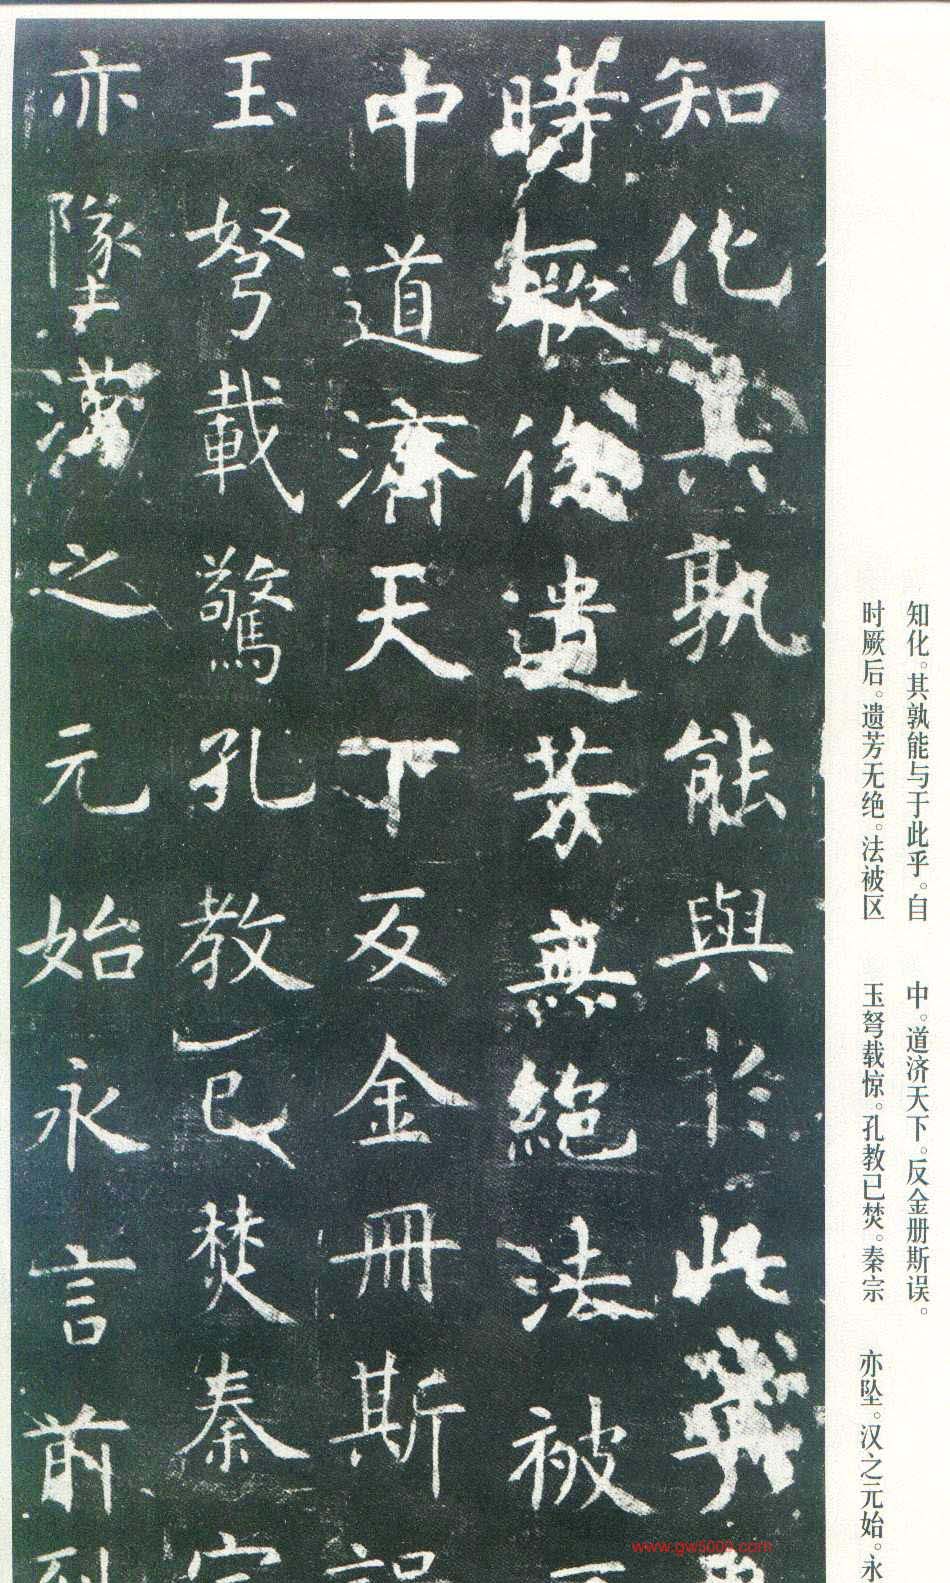 知化其孰能與於此乎
時厥後遺芳無絕法被
中道濟天下反金冊斯誤
玉弩載驚孔教已焚秦宗
亦墜漢之元始永言前烈
知化。其孰能与于此乎。自
时厥后。遗芳无绝。法被区
中。道济天下。反金册斯误。
玉弩载惊。孔教已焚。秦宗
亦坠。汉之元始。永
www.gw5000.com